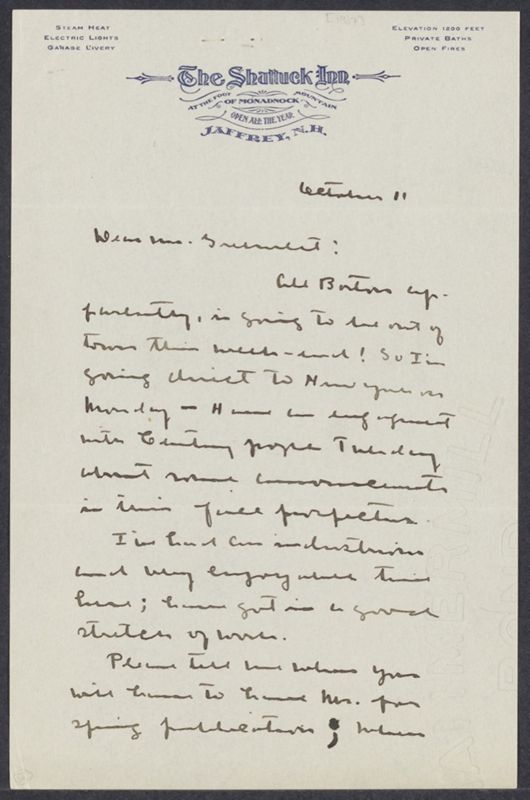 [1917]
STEAM HEAT
ELECTRIC LIGHTS
GARAGE LIVERY
ELEVATION 1200 FEET
PRIVATE BATHS
OPEN FIRES
The Shattuck Inn
AT THE FOOT OF MONADNOCK MOUNTAIN
OPEN ALL THE YEAR
JAFFREY, N.H.
October 11
Dear Mr. Greenslet:
All Boston ap-
parently, is going to be out of
town this week-end! So I'm
going direct to New York on
Monday — Have an engagement
with Century people Tuesday
about some announcements
in their fall prospectus.
I've had an industrious
and very enjoyable time
here; have got in a good
stretch of work.
Please tell me when you
will have to have Ms. for
spring publication; when